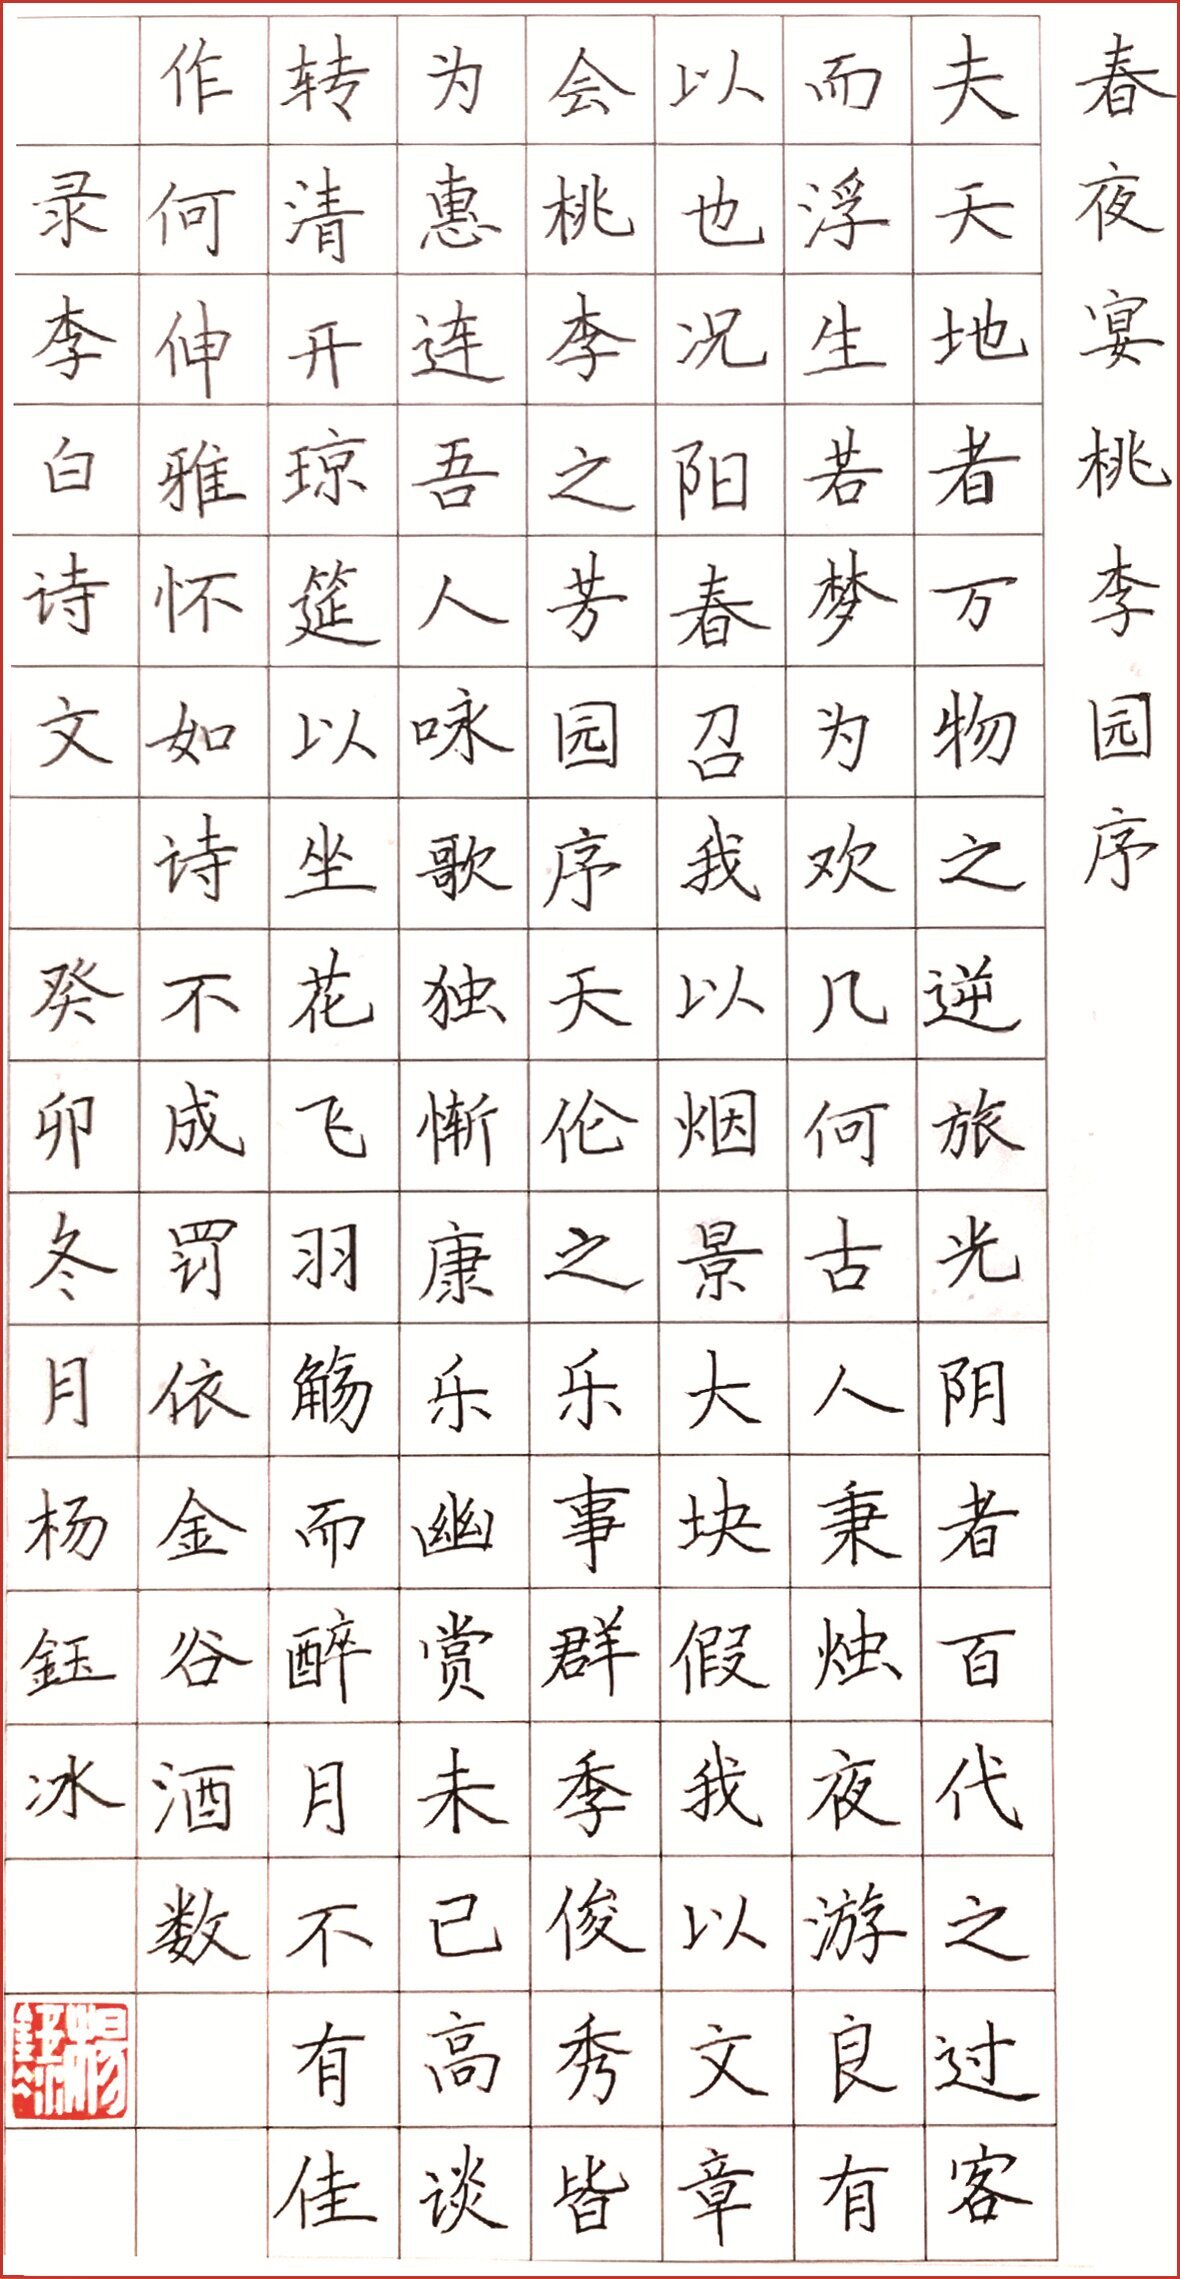 春夜宴桃李园序
夫天地者万物之逆旅光阴者百代之过客
而浮生若梦为欢几何古人秉烛夜游良有
以也况阳春召我以烟景大块假我以文章
会桃李之芳园序天伦之乐事群季俊秀皆
为惠连吾人咏歌独惭康乐幽赏未已高谈
转清开琼筵以坐花飞羽觞而醉月不有佳
作何伸雅怀如诗不成罚依金谷酒数
录李白诗文 癸卯冬月杨鈺冰